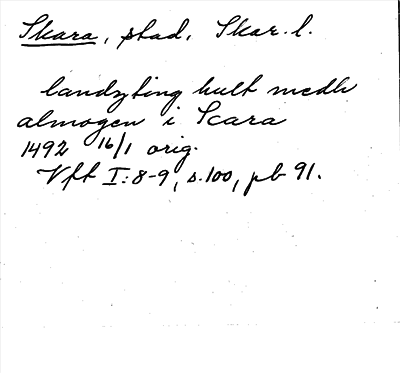 Skara, stad, Skar. l.
landzting hult medh
almogen i Scara
1492 16/1 orig.
Vfft I:8-9, s. 100, pb 91.